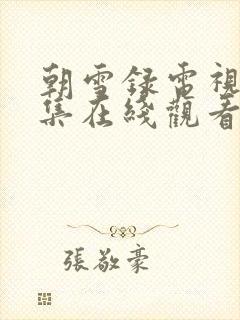 朝雪錄電視
集在綫觀看
張敬豪